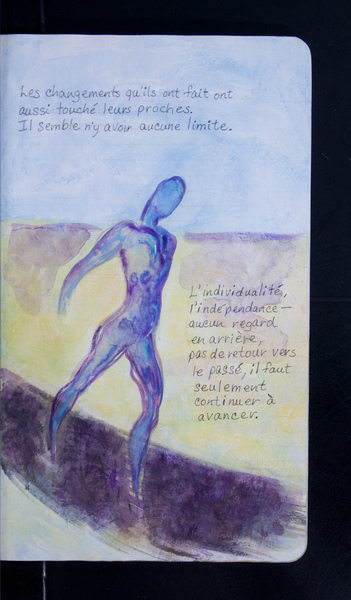 Les changements qu'ils ont fait ont
aussi touché leurs proches.
Il semble n'y avoir aucune limite.
L'individualité,
l'indépendance —
aucun regard
en arrière,
pas de retour vers
le passé, il faut
seulement
continuer à
avancer.